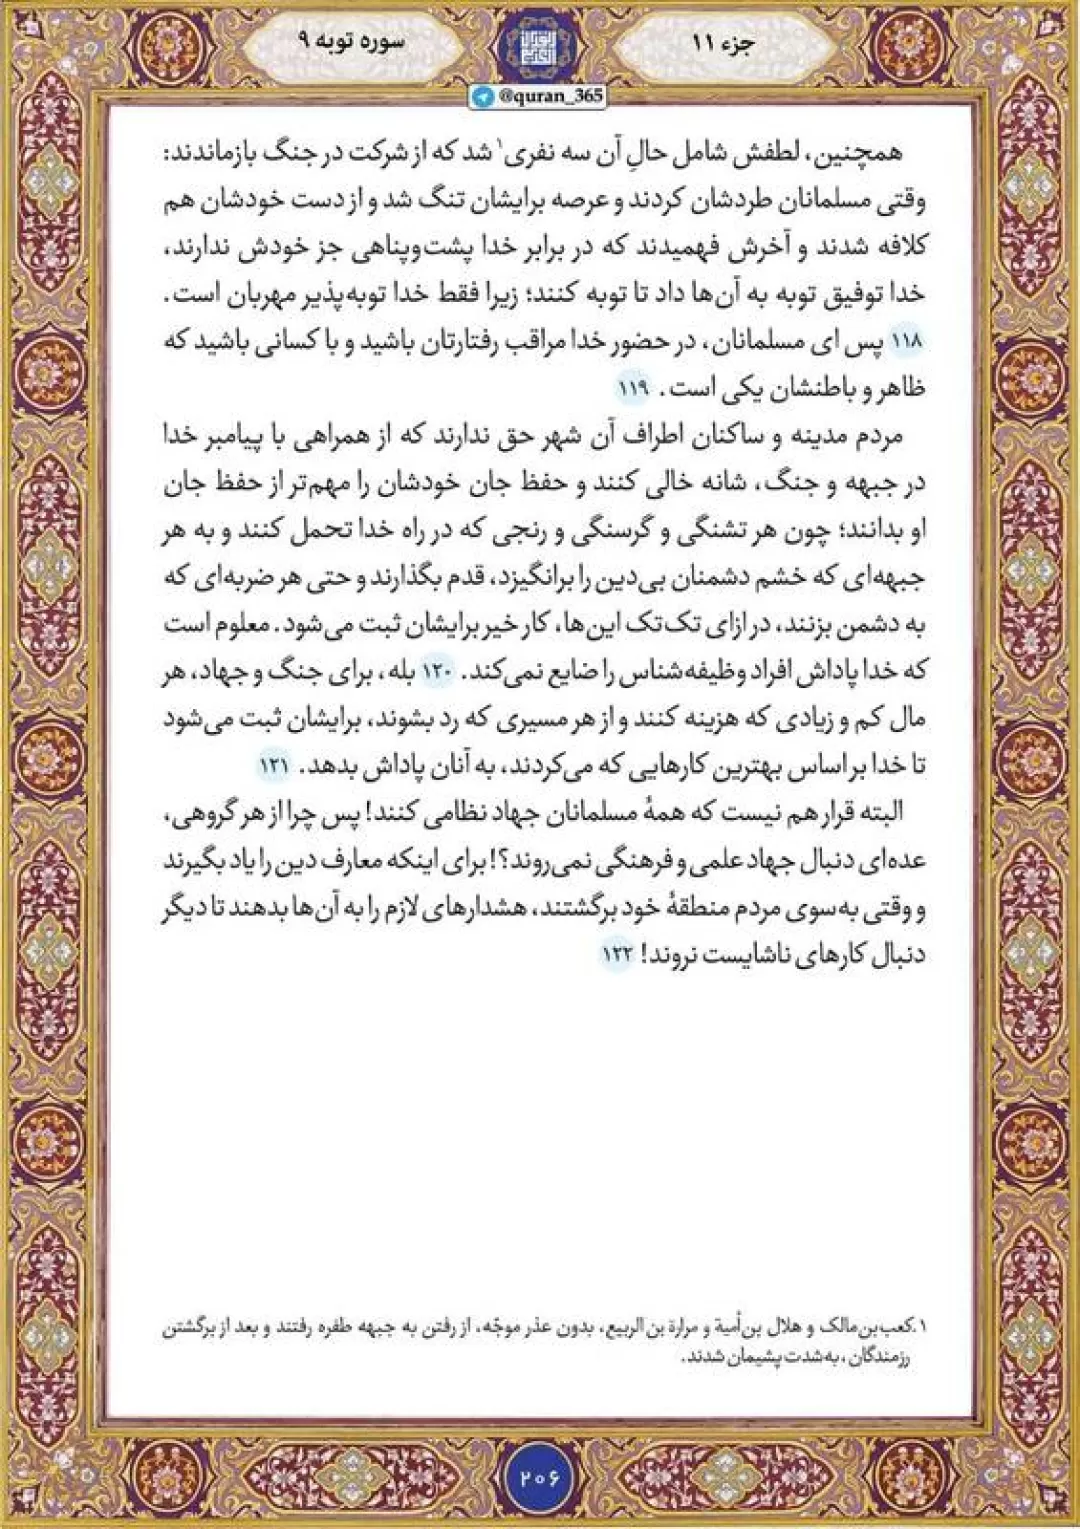 جزء ۱۱
سوره توبه ۹
@quran_365
همچنین، لطفش شامل حالِ آن سه نفری۱ شد که از شرکت در جنگ بازماندند:
وقتی مسلمانان طردشان کردند و عرصه برایشان تنگ شد و از دست خودشان هم
کلافه شدند و آخرش فهمیدند که در برابر خدا پشت‌وپناهی جز خودش ندارند،
خدا توفیق توبه به آن‌ها داد تا توبه کنند؛ زیرا فقط خدا توبه‌پذیر مهربان است.
۱۱۸ پس ای مسلمانان، در حضور خدا مراقب رفتارتان باشید و با کسانی باشید که
ظاهر و باطنشان یکی است. ۱۱۹
مردم مدینه و ساکنان اطراف آن شهر حق ندارند که از همراهی با پیامبر خدا
در جبهه و جنگ، شانه خالی کنند و حفظ جان خودشان را مهم‌تر از حفظ جان
او بدانند؛ چون هر تشنگی و گرسنگی و رنجی که در راه خدا تحمل کنند و به هر
جبهه‌ای که خشم دشمنان بی‌دین را برانگیزد، قدم بگذارند و حتی هر ضربه‌ای که
به دشمن بزنند، در ازای تک‌تک این‌ها، کار خیر برایشان ثبت می‌شود. معلوم است
که خدا پاداش افراد وظیفه‌شناس را ضایع نمی‌کند. ۱۲۰ بله، برای جنگ و جهاد، هر
مال کم و زیادی که هزینه کنند و از هر مسیری که رد بشوند، برایشان ثبت می‌شود
تا خدا بر اساس بهترین کارهایی که می‌کردند، به آنان پاداش بدهد. ۱۲۱
البته قرار هم نیست که همهٔ مسلمانان جهاد نظامی کنند! پس چرا از هر گروهی،
عده‌ای دنبال جهاد علمی و فرهنگی نمی‌روند؟! برای اینکه معارف دین را یاد بگیرند
و وقتی به‌سوی مردم منطقهٔ خود برگشتند، هشدارهای لازم را به آن‌ها بدهند تا دیگر
دنبال کارهای ناشایست نروند! ۱۲۲
۱. کعب‌بن‌مالک و هلال بن‌أمیة و مرارة بن‌الربیع، بدون عذر موجّه، از رفتن به جبهه طفره رفتند و بعد از برگشتن
رزمندگان، به‌شدت پشیمان شدند.
۲۰۶